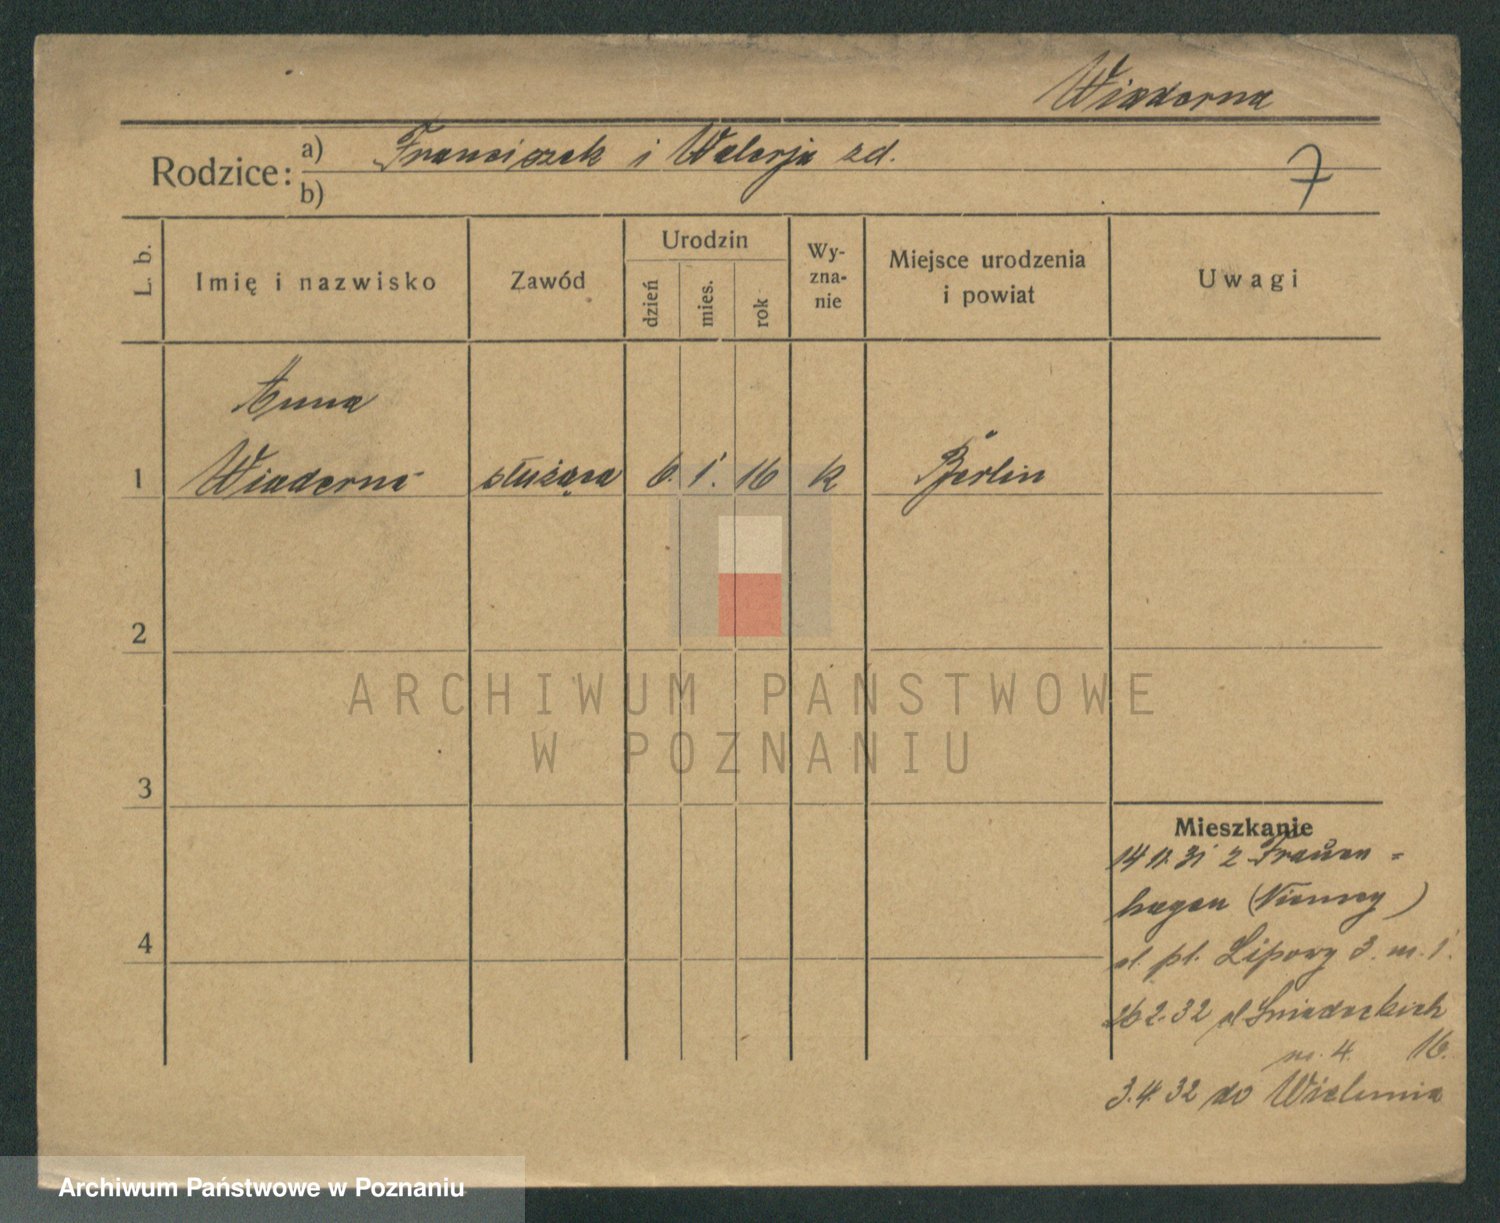 Wiaderna
Rodzice: a) Franciszek i Walerja zd.
b)
7
L. b.
Imię i nazwisko
Zawód
Urodzin
dzień
mies.
rok
Wy-
zna-
nie
Miejsce urodzenia
i powiat
Uwagi
Anna
1 Wiaderna służąca 6. 1. 16 k Berlin
2
3
4
ARCHIWUM PAŃSTWOWE
W POZNANIU
Mieszkanie
14 11. 31 z Frauen-
hagen (Niemcy)
pl. Lipowy 3. m. 1.
26 2. 32 Śniadeckich
m. 4. 16.
3. 4. 32 do Wielunia
Archiwum Państwowe w Poznaniu